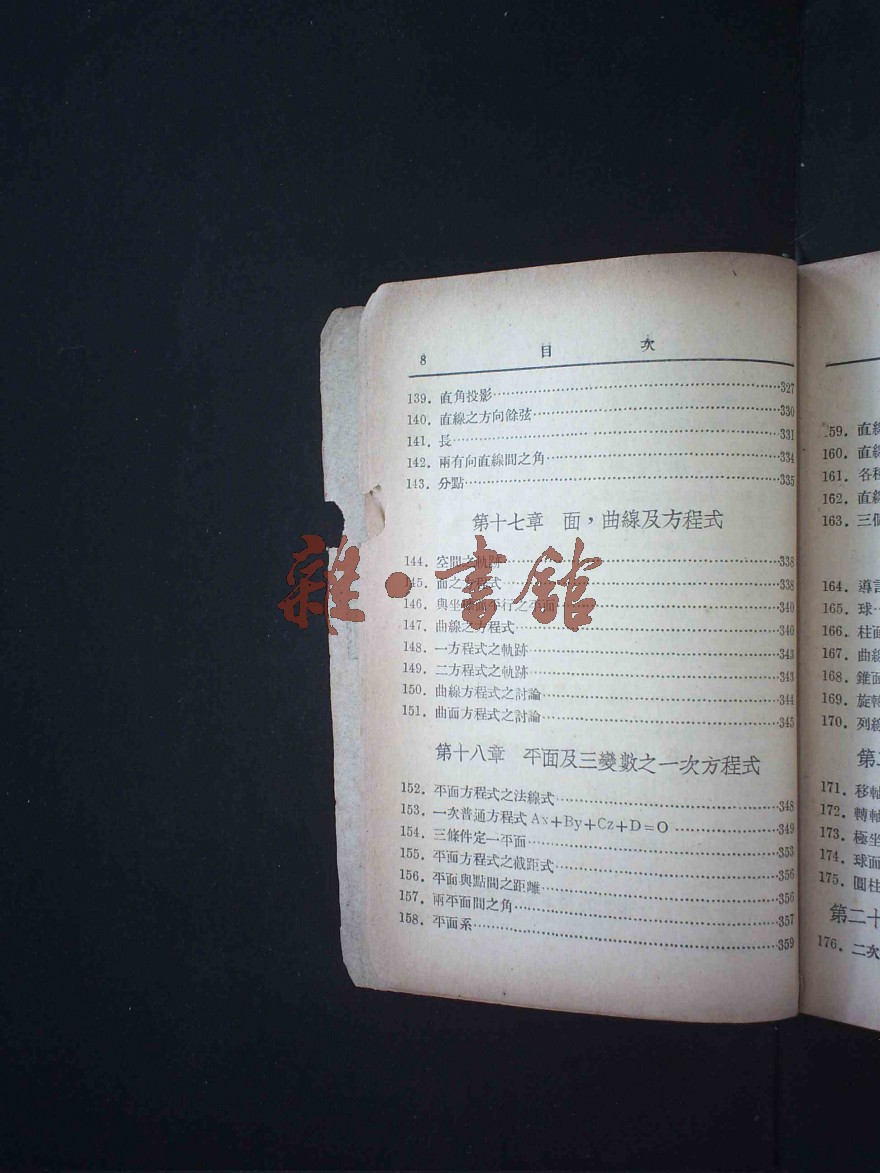 8 目 次
139. 直角投影 327
140. 直線之方向餘弦 330
141. 長 331
142. 兩有向直線間之角 334
143. 分點 335
第十七章 面，曲線及方程式
144. 空間之軌跡 338
145. 面之方程式 338
146. 與坐標面平行之平面 340
147. 曲線之方程式 340
148. 一方程式之軌跡 343
149. 二方程式之軌跡 343
150. 曲線方程式之討論 344
151. 曲面方程式之討論 345
第十八章 平面及三變數之一次方程式
152. 平面方程式之法線式 348
153. 一次普通方程式 Ax+By+Cz+D=O 349
154. 三條件定一平面 353
155. 平面方程式之截距式 356
156. 平面與點間之距離 356
157. 兩平面間之角 357
158. 平面系 359
雜·書館
159. 直線
160. 直線
161. 各種
162. 直線
163. 三個
164. 導言
165. 球
166. 柱面
167. 曲線
168. 錐面
169. 旋轉
170. 列線
第二
171. 移軸
172. 轉軸
173. 極坐
174. 球面
175. 圓柱
第二十
176. 二次